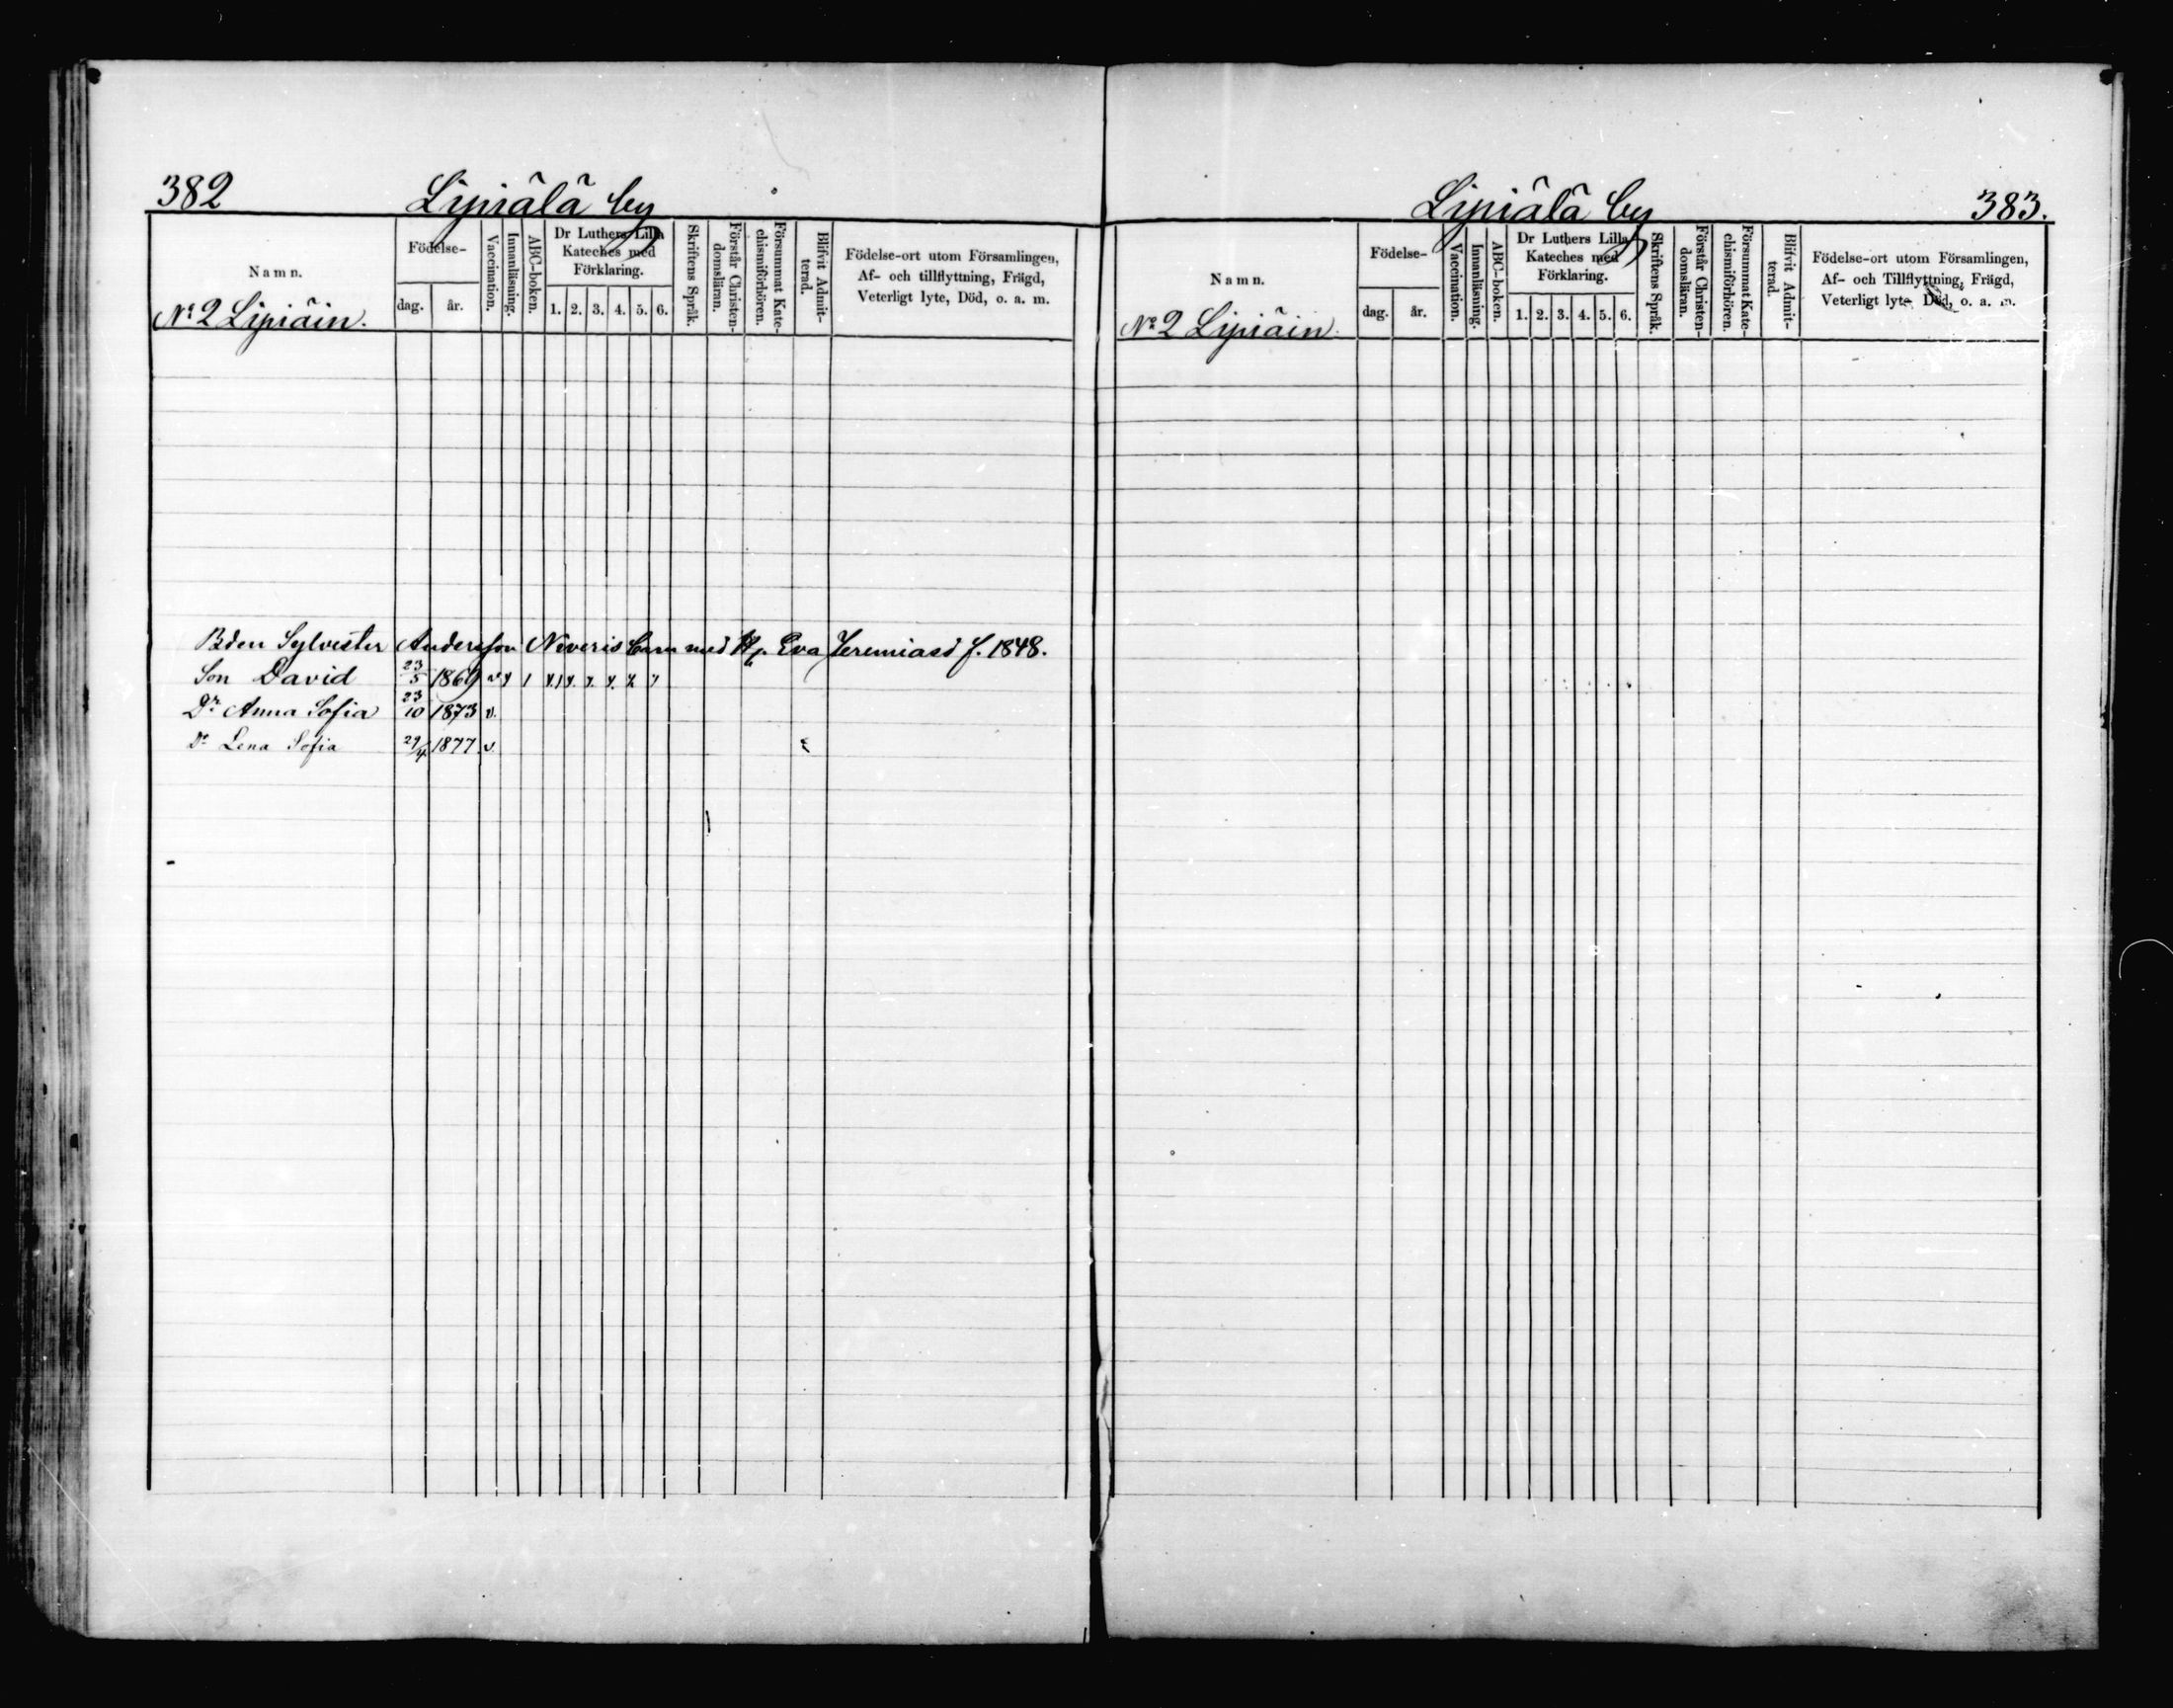 382 Lipiälä by
Namn.
Födelse-
dag. år.
Vaccination.
Innanläsning.
ABC-boken.
Dr Luthers Lilla
Kateches med
Förklaring.
1. 2. 3. 4. 5. 6.
Skriftens Språk.
Förstår Christen-
domsläran.
Försummat Kate-
chismiförhören.
Blifvit Admit-
terad.
Födelse-ort utom Församlingen,
Af- och tillflyttning, Frägd,
Veterligt lyte, Död, o. a. m.
No 2 Lipiäin.
Bden Sylvester Andersson Niveris Barn med H. Eva Jeremiasd f. 1848.
Son David 23/5 1869
Dr Anna Sofia 23/10 1873 v.
Dr Lena Sofia 29/4 1877 v.
Lipiälä by 383.
Namn.
Födelse-
dag. år.
Vaccination.
Innanläsning.
ABC-boken.
Dr Luthers Lilla
Kateches med
Förklaring.
1. 2. 3. 4. 5. 6.
Skriftens Språk.
Förstår Christen-
domsläran.
Försummat Kate-
chismiförhören.
Blifvit Admit-
terad.
Födelse-ort utom Församlingen,
Af- och Tillflyttning, Frägd,
Veterligt lyte, Död, o. a. m.
No 2 Lipiäin.